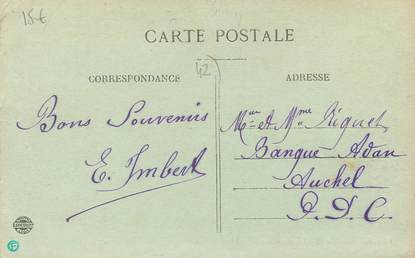 15€
CARTE POSTALE
42
CORRESPONDANCE
ADRESSE
Bons Souvenirs
E. Imbert
Mr et Mme Riquet
Banque Adam
Auchel
P. D. C.